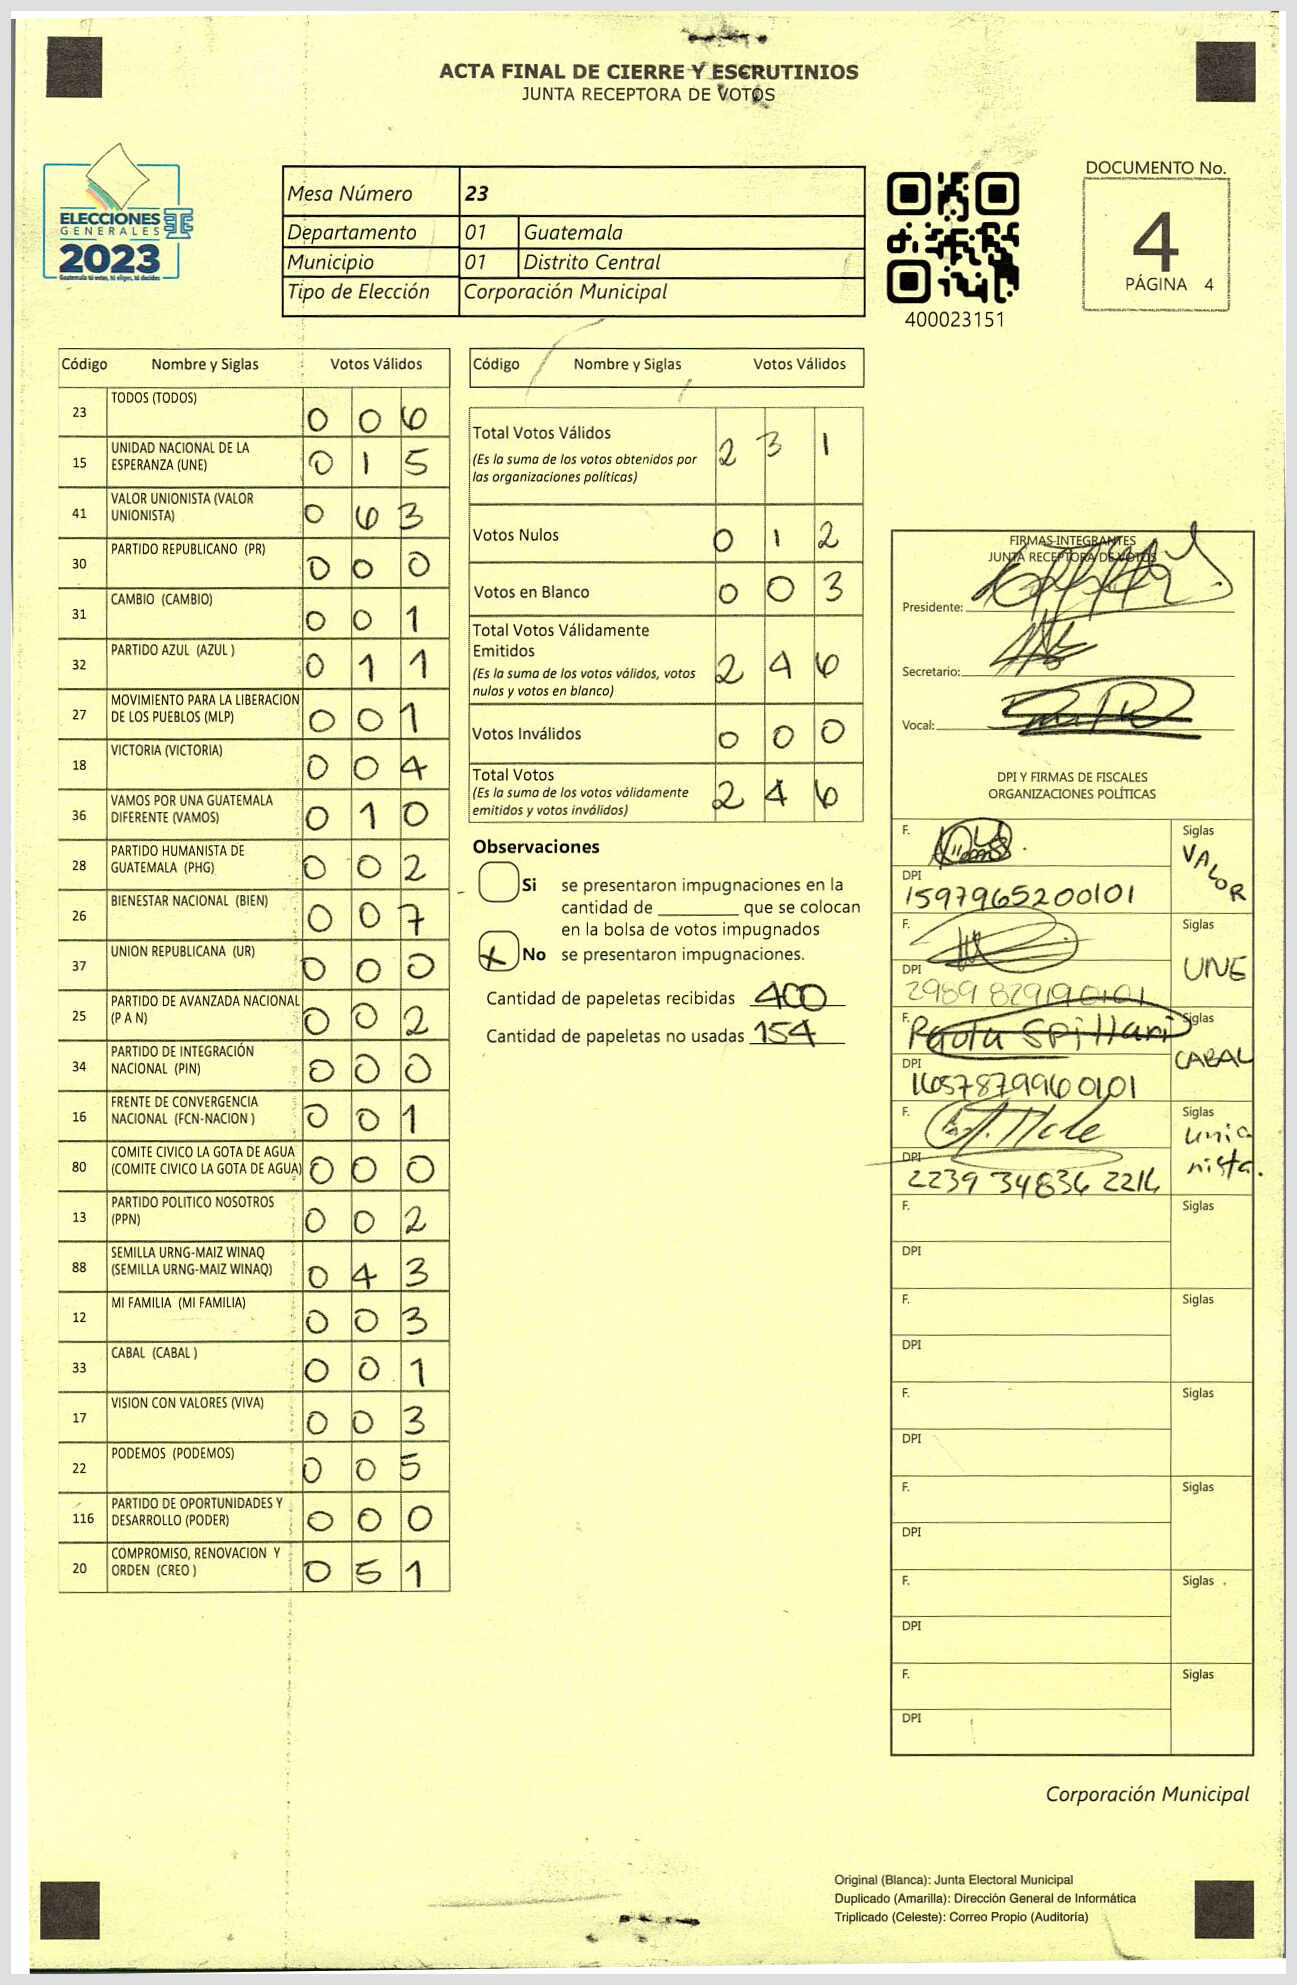 ACTA FINAL DE CIERRE Y ESCRUTINIOS
JUNTA RECEPTORA DE VOTOS
ELECCIONES
GENERALES
2023
Guatemala tú votas, tú eliges, tú decides
Mesa Número 23
Departamento 01 Guatemala
Municipio 01 Distrito Central
Tipo de Elección Corporación Municipal
400023151
DOCUMENTO No.
4
PÁGINA 4
Código Nombre y Siglas Votos Válidos
23 TODOS (TODOS) 0 0 6
15 UNIDAD NACIONAL DE LA ESPERANZA (UNE) 0 1 5
41 VALOR UNIONISTA (VALOR UNIONISTA) 0 6 3
30 PARTIDO REPUBLICANO (PR) 0 0 0
31 CAMBIO (CAMBIO) 0 0 1
32 PARTIDO AZUL (AZUL ) 0 1 1
27 MOVIMIENTO PARA LA LIBERACION DE LOS PUEBLOS (MLP) 0 0 1
18 VICTORIA (VICTORIA) 0 0 4
36 VAMOS POR UNA GUATEMALA DIFERENTE (VAMOS) 0 1 0
28 PARTIDO HUMANISTA DE GUATEMALA (PHG) 0 0 2
26 BIENESTAR NACIONAL (BIEN) 0 0 7
37 UNION REPUBLICANA (UR) 0 0 0
25 PARTIDO DE AVANZADA NACIONAL (P A N) 0 0 2
34 PARTIDO DE INTEGRACIÓN NACIONAL (PIN) 0 0 0
16 FRENTE DE CONVERGENCIA NACIONAL (FCN-NACION ) 0 0 1
80 COMITE CIVICO LA GOTA DE AGUA (COMITE CIVICO LA GOTA DE AGUA) 0 0 0
13 PARTIDO POLITICO NOSOTROS (PPN) 0 0 2
88 SEMILLA URNG-MAIZ WINAQ (SEMILLA URNG-MAIZ WINAQ) 0 4 3
12 MI FAMILIA (MI FAMILIA) 0 0 3
33 CABAL (CABAL ) 0 0 1
17 VISION CON VALORES (VIVA) 0 0 3
22 PODEMOS (PODEMOS) 0 0 5
116 PARTIDO DE OPORTUNIDADES Y DESARROLLO (PODER) 0 0 0
20 COMPROMISO, RENOVACION Y ORDEN (CREO ) 0 5 1
Código Nombre y Siglas Votos Válidos
Total Votos Válidos 2 3 1
(Es la suma de los votos obtenidos por
las organizaciones políticas)
Votos Nulos 0 1 2
Votos en Blanco 0 0 3
Total Votos Válidamente
Emitidos 2 4 6
(Es la suma de los votos válidos, votos
nulos y votos en blanco)
Votos Inválidos 0 0 0
Total Votos 2 4 6
(Es la suma de los votos válidamente
emitidos y votos inválidos)
Observaciones
Si se presentaron impugnaciones en la
cantidad de ________ que se colocan
en la bolsa de votos impugnados
X No se presentaron impugnaciones.
Cantidad de papeletas recibidas 400
Cantidad de papeletas no usadas 154
FIRMAS INTEGRANTES
JUNTA RECEPTORA DE VOTOS
Presidente:
Secretario:
Vocal:
DPI Y FIRMAS DE FISCALES
ORGANIZACIONES POLÍTICAS
F. Siglas VALOR
DPI 1597965200101
F. Siglas UNE
DPI 2989 829190101
F. Paola Spillari Siglas CABAL
DPI 1657879960101
F. Siglas unionista.
DPI 2239 34836 2216
F. Siglas
DPI
F. Siglas
DPI
F. Siglas
DPI
F. Siglas
DPI
F. Siglas
DPI
F. Siglas
DPI
Corporación Municipal
Original (Blanca): Junta Electoral Municipal
Duplicado (Amarilla): Dirección General de Informática
Triplicado (Celeste): Correo Propio (Auditoría)